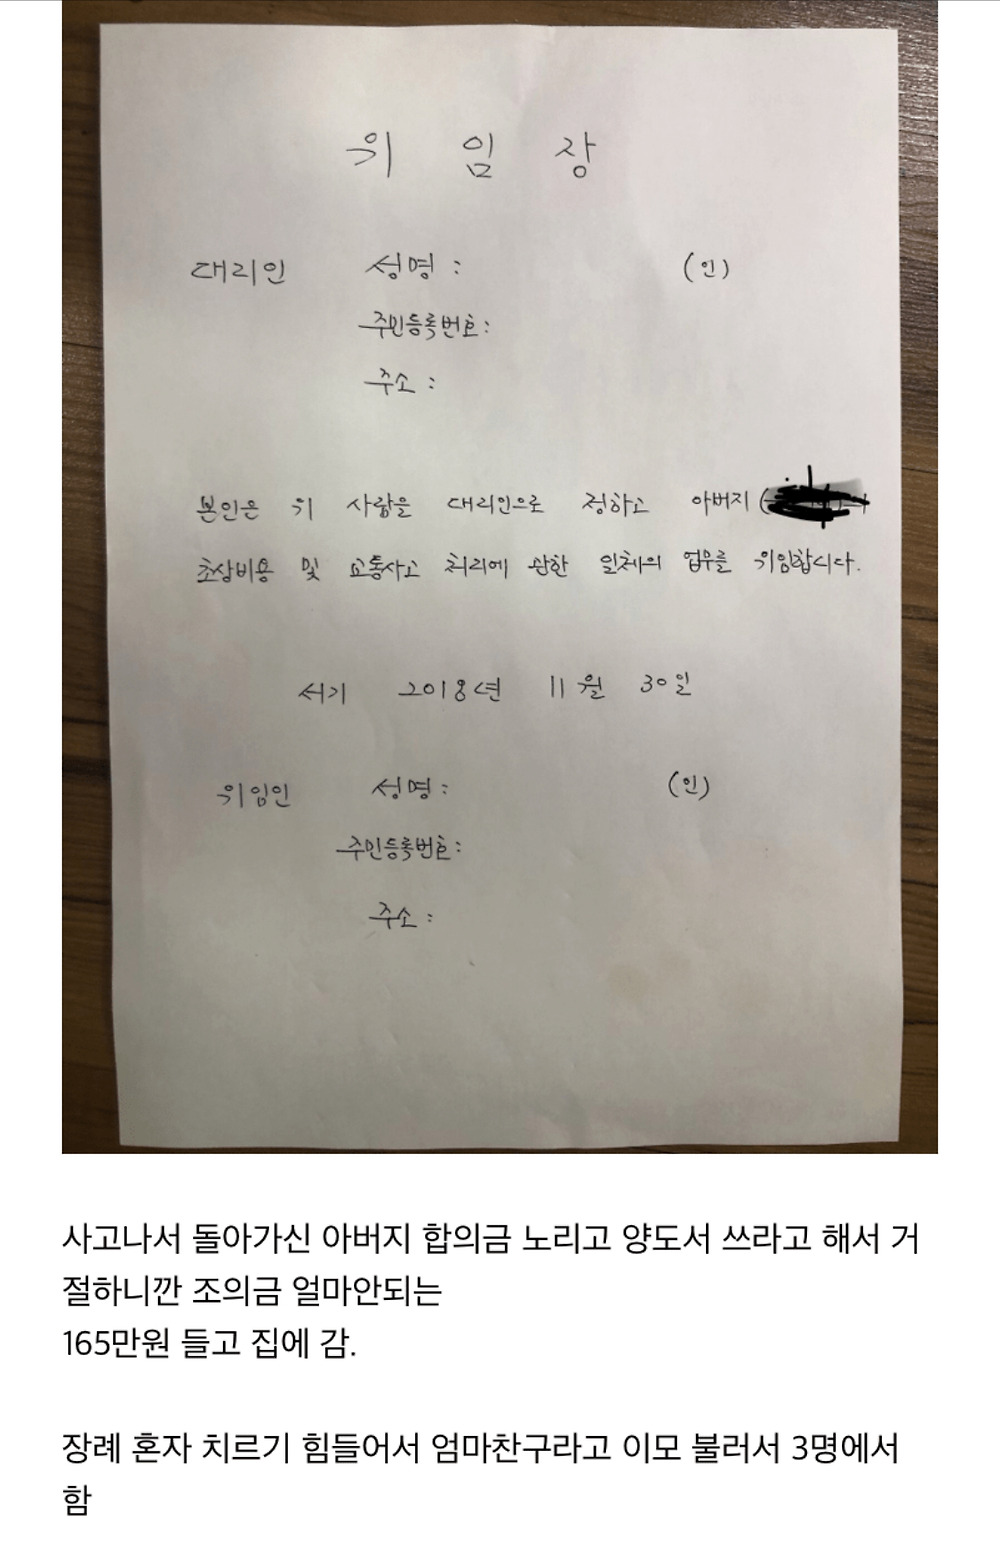 위 임 장
대리인 성명 : (인)
주민등록번호 :
주소 :
본인은 위 사람을 대리인으로 정하고 아버지 (
초상비용 및 교통사고 처리에 관한 일체의 업무를 위임합시다.
서기 2018년 11월 30일
위임인 성명 : (인)
주민등록번호 :
주소 :
사고나서 돌아가신 아버지 합의금 노리고 양도서 쓰라고 해서 거
절하니깐 조의금 얼마안되는
165만원 들고 집에 감.
장례 혼자 치르기 힘들어서 엄마찬구라고 이모 불러서 3명에서
함